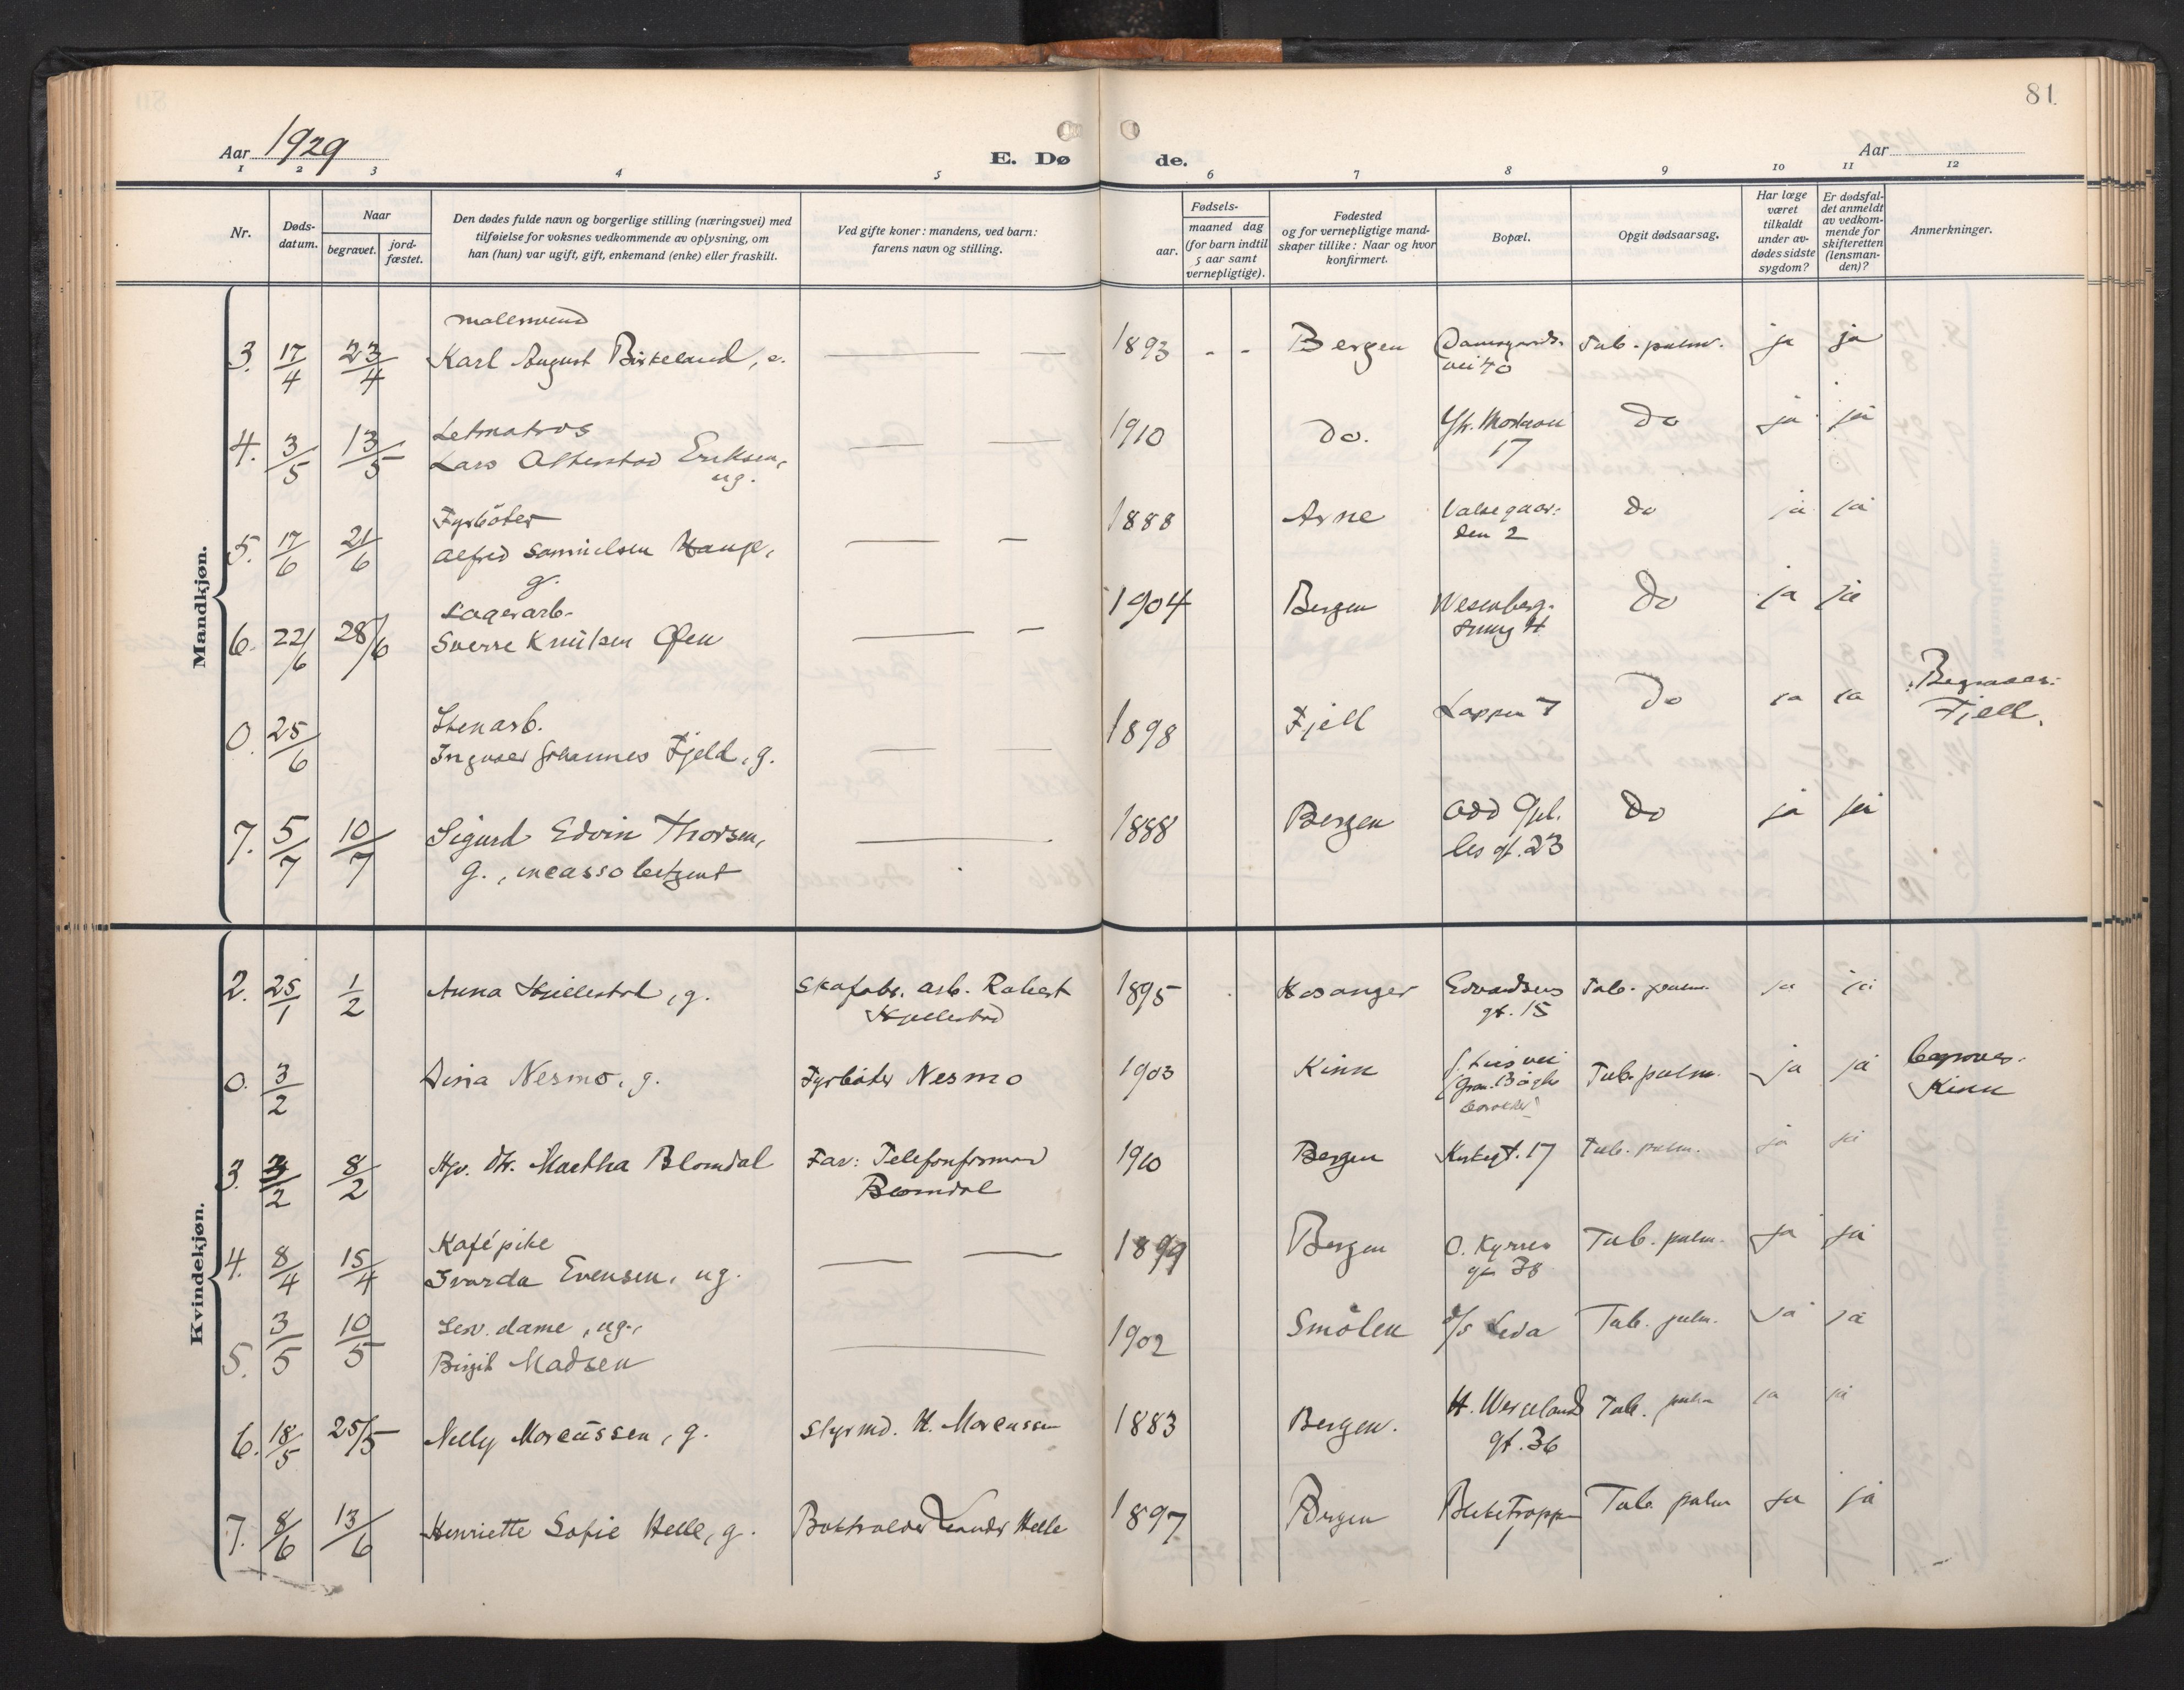 81.
Aar 1929
E. Dø
de.
Aar
1 2 3 4 5 6 7 8 9 10 11 12
Nr.
Døds-
datum.
Naar
begravet.
jord-
fæstet.
Den dødes fulde navn og borgerlige stilling (næringsvei) med
tilføielse for voksnes vedkommende av oplysning, om
han (hun) var ugift, gift, enkemand (enke) eller fraskilt.
Ved gifte koner: mandens, ved barn:
farens navn og stilling.
Fødsels-
aar.
maaned dag
(for barn indtil
5 aar samt
vernepligtige).
Fødested
og for vernepligtige mand-
skaper tillike: Naar og hvor
konfirmert.
Bopæl.
Opgit dødsaarsag.
Har læge
været
tilkaldt
under av-
dødes sidste
sygdom?
Er dødsfal-
det anmeldt
av vedkom-
mende for
skifteretten
(lensman-
den)?
Anmerkninger.
Mandkjøn.
malersvend
3. 17/4 23/4 Karl August Birkeland, e. 1893 - - Bergen Damsgaards- Tub. pulm. ja ja
vei 70
Letmatros
4. 3/5 13/5 Lars Eriksen, 1910 Do. 17 Do ja ja
ug.
Fyrbøter
5. 17/6 21/6 Alfred Samuelsen Hauge, 1888 Arne Valkegaar- do ja ja
g. den 2
Lagerarb.
6. 22/6 28/6 Sverre Knutsen Øen 1904 Bergen Wesenberg- Do ja ja
smug 4
Stenarb.
0. 25/6 Ingvald Johannes Fjeld, g. 1898 Fjell Lappen 7 Do ja ja Begraves:
Fjell.
7. 5/7 10/7 Sigurd Edvin Thorsen, 1888 Bergen Odd Gjel. Do ja ja
g., incassobetjent les gt. 23
Kvindekjøn.
2. 25/1 1/2 Anna Hjellestad, g. Skofabr. arb. Robert 1895 Hosanger Edvardsens Tub. pulm. ja ja
Hjellestad gt. 15
0. 3/2 Dina Nesmo, g. Fyrbøter Nesmo 1903 Kinn J. Lies vei Tub. pulm. ja ja begraves.
Kinn
3. 3/2 8/2 Hjv. dtr. Martha Blomdal Far: Telefonformand 1910 Bergen 17 Tub. pulm. ja ja
Blomdal
Kafépike
4. 8/4 15/4 Ivarda Evensen, ug. 1899 Bergen O. Kyrres Tub. pulm. ja ja
gt 38
Serv. dame, ug.,
5. 3/5 10/5 Birgit Madsen 1902 Smölen d/s Leda Tub. pulm. ja ja
6. 18/5 25/5 Nelly Marcussen, g. Styrmd. H. Marcussen 1883 Bergen. H. Wergelands Tub. pulm ja ja
gt. 36
7. 8/6 13/6 Henriette Sofie Helle, g. Bokholder Leander Helle 1897 Bergen Bleketrappen Tub. pulm ja ja
1